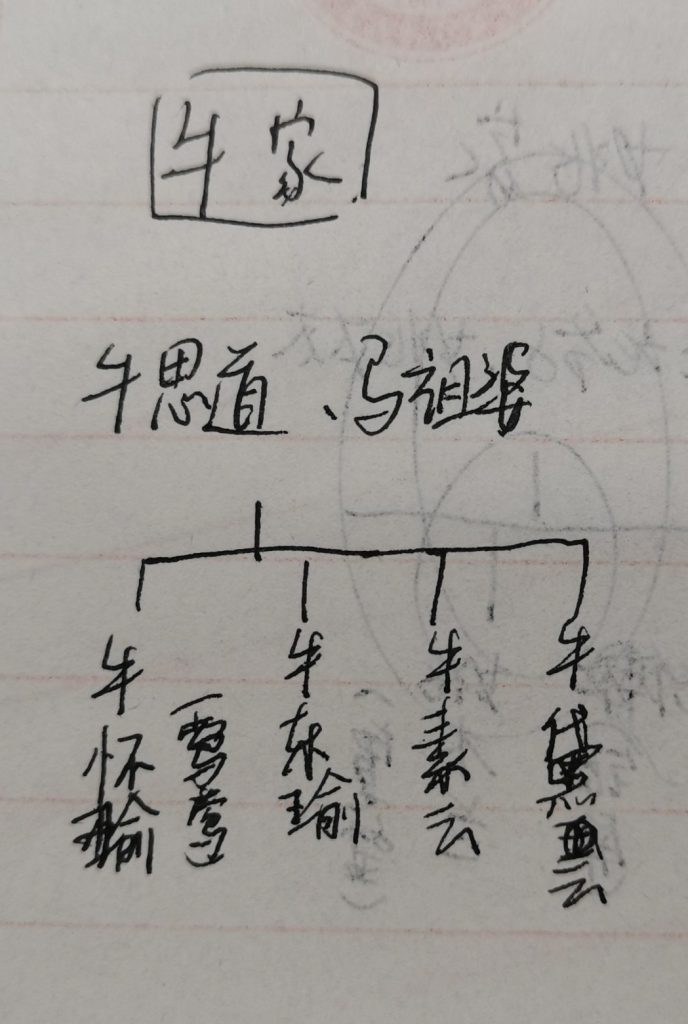 牛家
牛思道、马祖婆
牛怀瑜
牛东瑜
牛素云
牛黛云